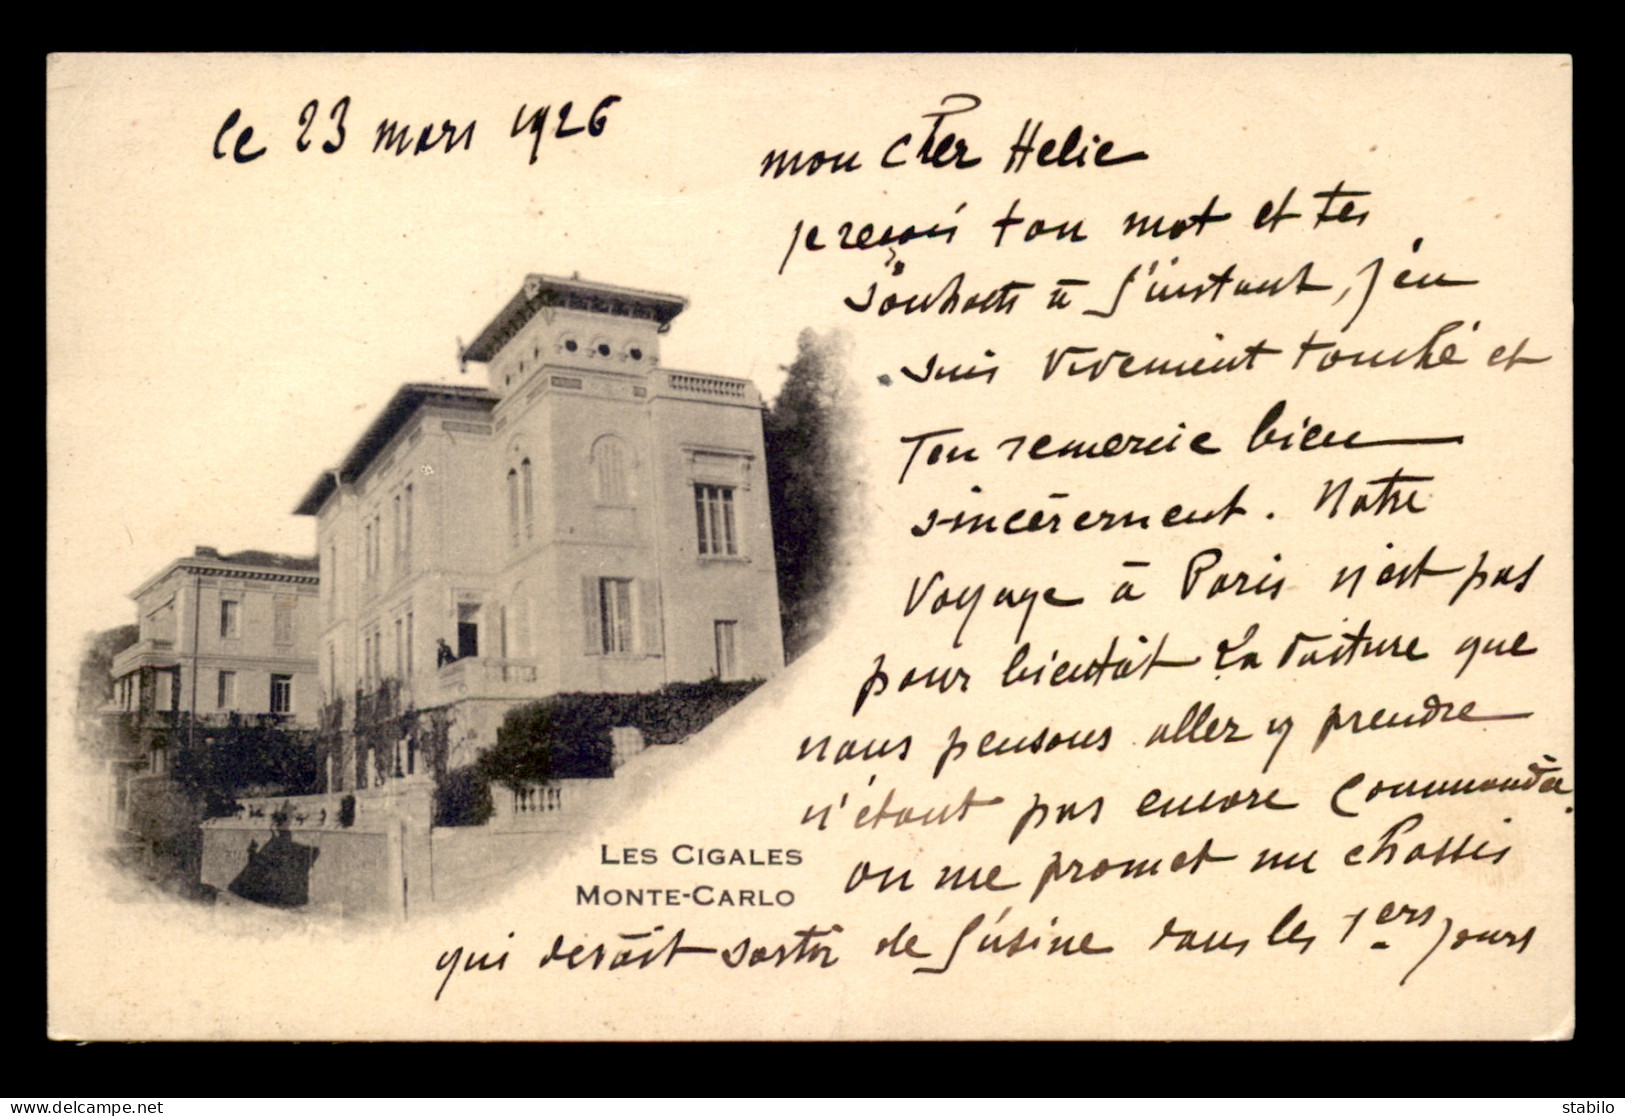 le 23 mars 1926
mon cher Helie
je reçois ton mot et tes
souhaits à l'instant, j'en
suis vivement touché et
t'en remercie bien
sincèrement. Notre
voyage à Paris n'est pas
pour bientôt la voiture que
nous pensons aller y prendre
n'étant pas encore commandée.
on me promet un chassis
qui devait sortir de l'usine dans les 1ers jours
LES CIGALES
MONTE-CARLO
delcampe.net
stabilo